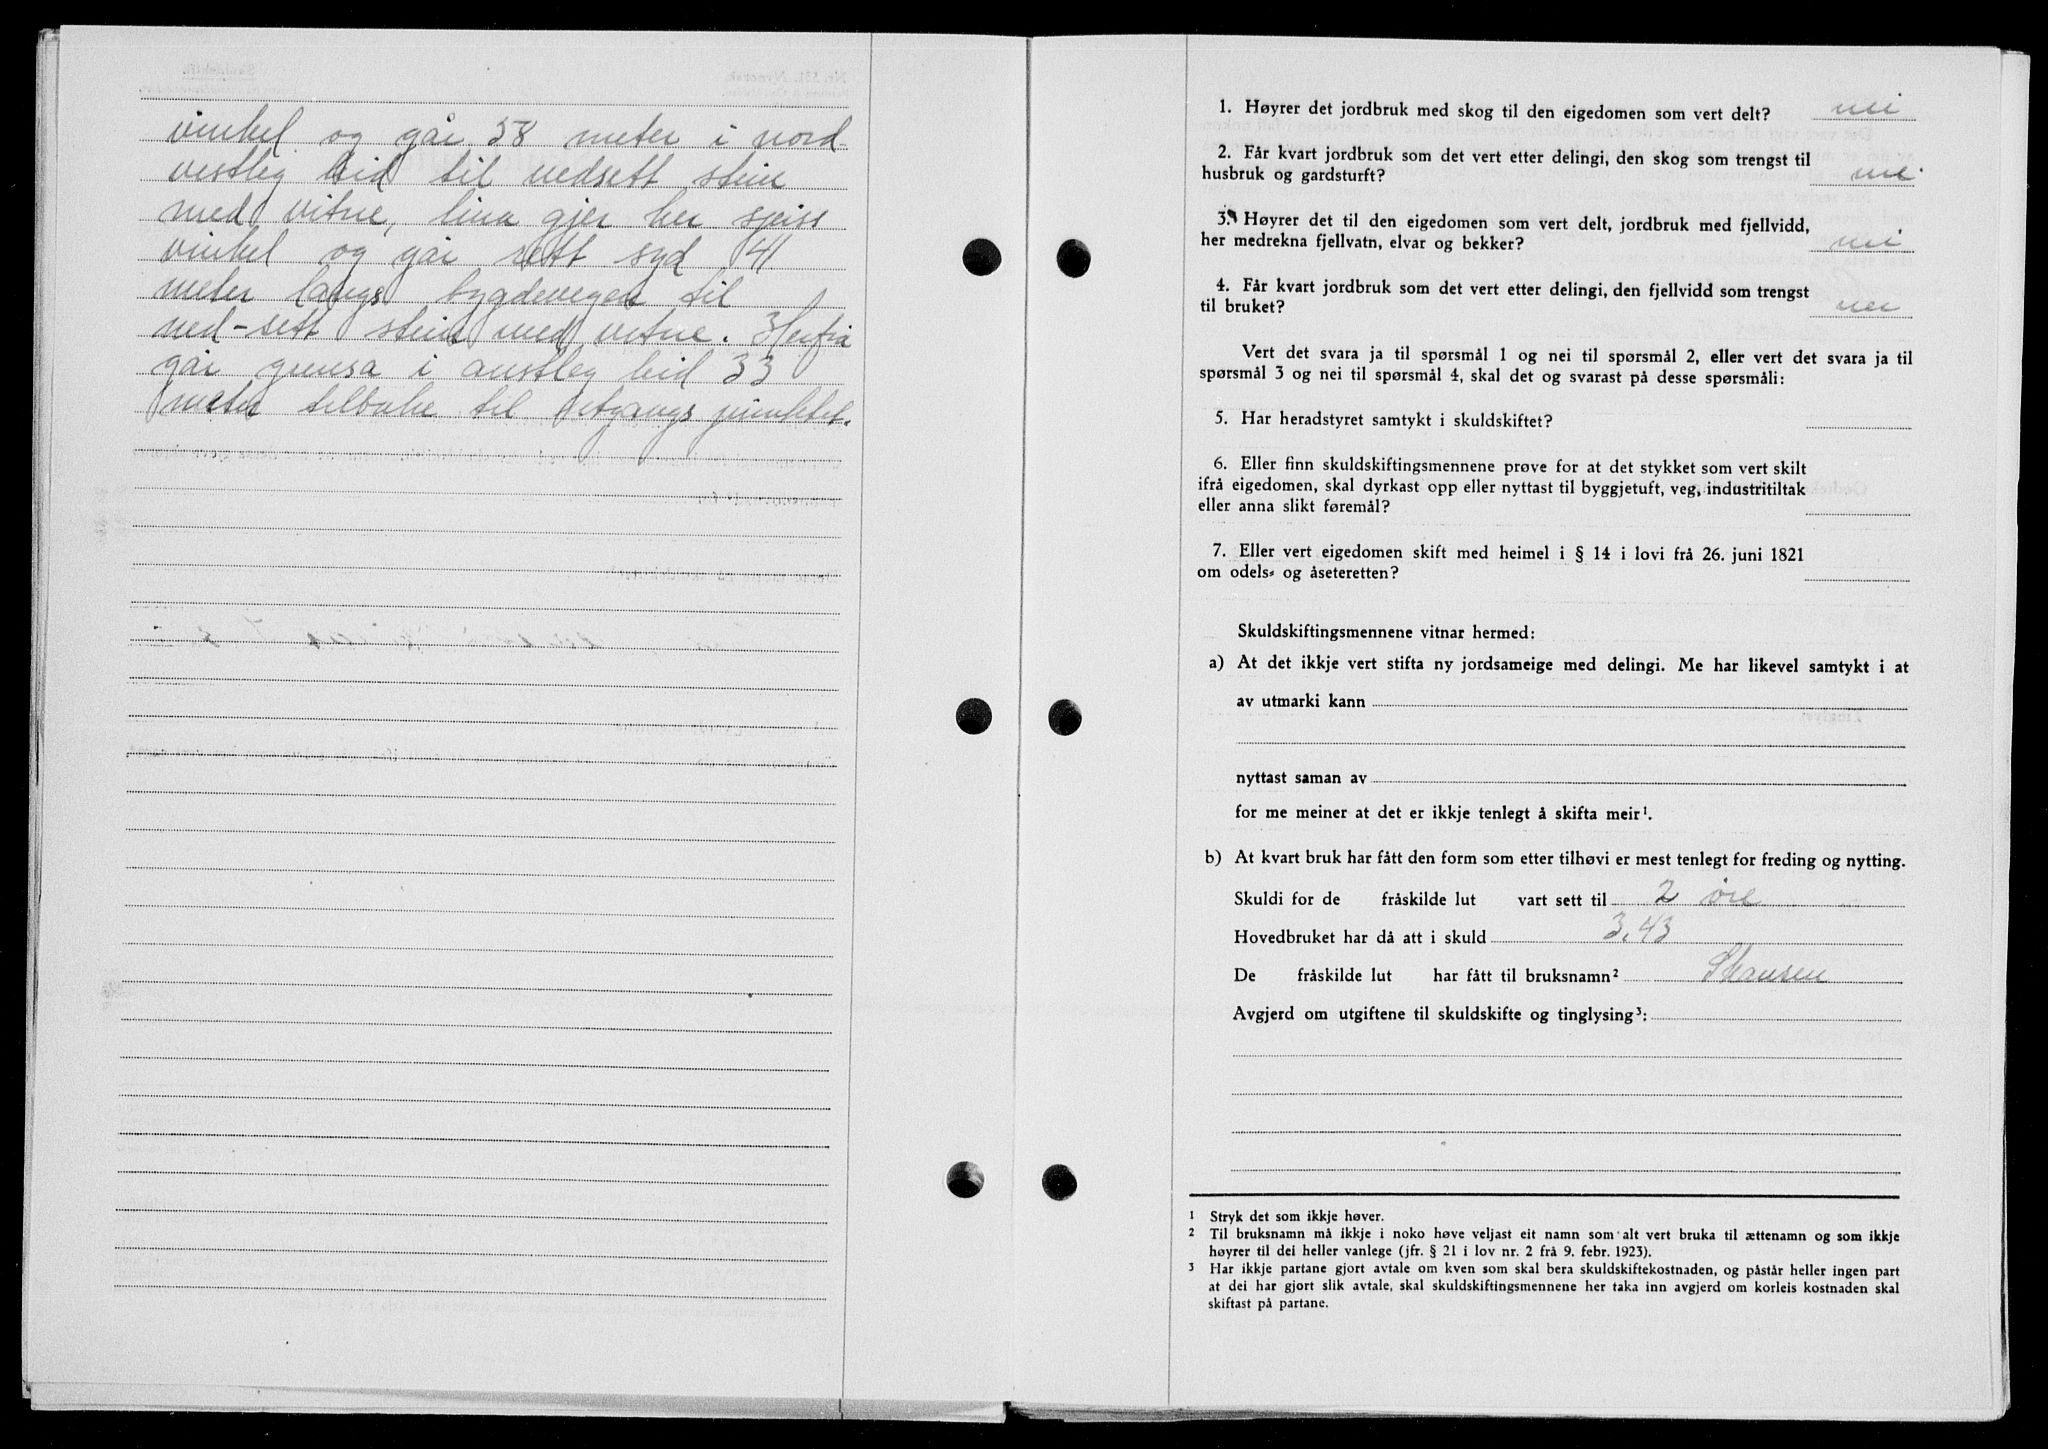 vinkel og går 58 meter i nord-
vestleg leid til nedsett stein
med vitne, lina gjer her spiss
vinkel og går rett syd 41
meter langs bygdevegen til
ned-sett stein med vitne. Herfra
går grensa i austleg leid 33
meter tilbake til utgangs punktet.
1. Høyrer det jordbruk med skog til den eigedomen som vert delt? nei
2. Får kvart jordbruk som det vert etter delingi, den skog som trengst til
husbruk og gardsturft? nei
3. Høyrer det til den eigedomen som vert delt, jordbruk med fjellvidd,
her medrekna fjellvatn, elvar og bekker? nei
4. Får kvart jordbruk som det vert etter delingi, den fjellvidd som trengst
til bruket? nei
Vert det svara ja til spørsmål 1 og nei til spørsmål 2, eller vert det svara ja til
spørsmål 3 og nei til spørsmål 4, skal det og svarast på desse spørsmåli:
5. Har heradstyret samtykt i skuldskiftet?
6. Eller finn skuldskiftingsmennene prøve for at det stykket som vert skilt
ifrå eigedomen, skal dyrkast opp eller nyttast til byggjetuft, veg, industritiltak
eller anna slikt føremål?
7. Eller vert eigedomen skift med heimel i § 14 i lovi frå 26. juni 1821
om odels- og åseteretten?
Skuldskiftingsmennene vitnar hermed:
a) At det ikkje vert stifta ny jordsameige med delingi. Me har likevel samtykt i at
av utmarki kann
nyttast saman av
for me meiner at det er ikkje tenlegt å skifta meir¹.
b) At kvart bruk har fått den form som etter tilhøvi er mest tenlegt for freding og nytting.
Skuldi for de fråskilde lut vart sett til 2 øre
Hovedbruket har då att i skuld 3.43
De fråskilde lut har fått til bruksnamn² Skansen
Avgjerd om utgiftene til skuldskifte og tinglysing³:
¹ Stryk det som ikkje høver.
² Til bruksnamn må ikkje i noko høve veljast eit namn som alt vert bruka til ættenamn og som ikkje
høyrer til dei heller vanlege (jfr. § 21 i lov nr. 2 frå 9. febr. 1923).
³ Har ikkje partane gjort avtale om kven som skal bera skuldskiftekostnaden, og påstår heller ingen part
at dei har gjort slik avtale, skal skuldskiftingsmennene her taka inn avgjerd om korleis kostnaden skal
skiftast på partane.